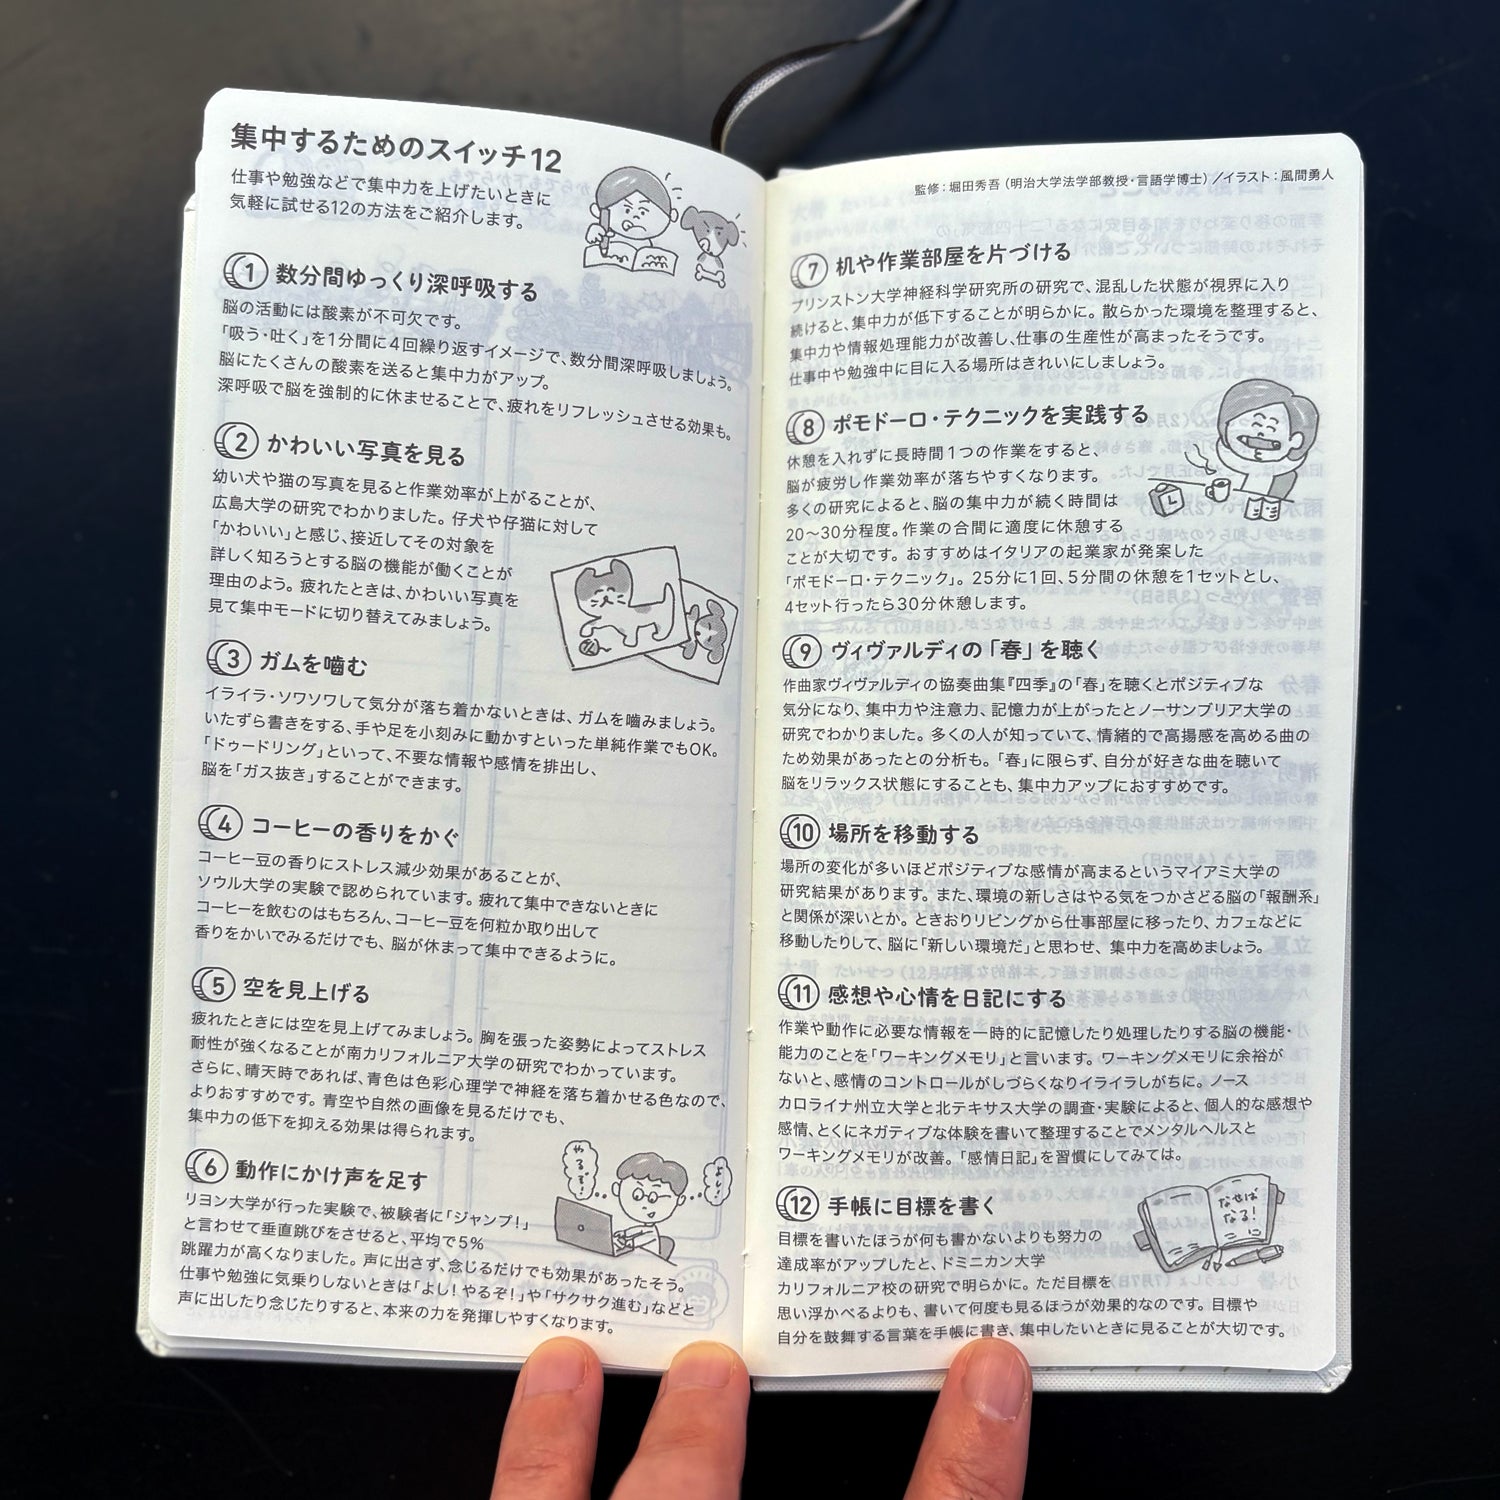 集中するためのスイッチ12
仕事や勉強などで集中力を上げたいときに
気軽に試せる12の方法をご紹介します。
1 数分間ゆっくり深呼吸する
脳の活動には酸素が不可欠です。
「吸う・吐く」を1分間に4回繰り返すイメージで、数分間深呼吸しましょう。
脳にたくさんの酸素を送ると集中力がアップ。
深呼吸で脳を強制的に休ませることで、疲れをリフレッシュさせる効果も。
2 かわいい写真を見る
幼い犬や猫の写真を見ると作業効率が上がることが、
広島大学の研究でわかりました。仔犬や仔猫に対して
「かわいい」と感じ、接近してその対象を
詳しく知ろうとする脳の機能が働くことが
理由のよう。疲れたときは、かわいい写真を
見て集中モードに切り替えてみましょう。
3 ガムを噛む
イライラ・ソワソワして気分が落ち着かないときは、ガムを噛みましょう。
いたずら書きをする、手や足を小刻みに動かすといった単純作業でもOK。
「ドゥードリング」といって、不要な情報や感情を排出し、
脳を「ガス抜き」することができます。
4 コーヒーの香りをかぐ
コーヒー豆の香りにストレス減少効果があることが、
ソウル大学の実験で認められています。疲れて集中できないときに
コーヒーを飲むのはもちろん、コーヒー豆を何粒か取り出して
香りをかいでみるだけでも、脳が休まって集中できるように。
5 空を見上げる
疲れたときには空を見上げてみましょう。胸を張った姿勢によってストレス
耐性が強くなることが南カリフォルニア大学の研究でわかっています。
さらに、晴天時であれば、青色は色彩心理学で神経を落ち着かせる色なので、
よりおすすめです。青空や自然の画像を見るだけでも、
集中力の低下を抑える効果は得られます。
6 動作にかけ声を足す
リヨン大学が行った実験で、被験者に「ジャンプ!」
と言わせて垂直跳びをさせると、平均で5%
跳躍力が高くなりました。声に出さず、念じるだけでも効果があったそう。
仕事や勉強に気乗りしないときは「よし! やるぞ!」や「サクサク進む」などと
声に出したり念じたりすると、本来の力を発揮しやすくなります。
やるぞ!
よし!
監修:堀田秀吾(明治大学法学部教授・言語学博士)/イラスト:風間勇人
7 机や作業部屋を片づける
プリンストン大学神経科学研究所の研究で、混乱した状態が視界に入り
続けると、集中力が低下することが明らかに。散らかった環境を整理すると、
集中力や情報処理能力が改善し、仕事の生産性が高まったそうです。
仕事中や勉強中に目に入る場所はきれいにしましょう。
8 ポモドーロ・テクニックを実践する
休憩を入れずに長時間1つの作業をすると、
脳が疲労し作業効率が落ちやすくなります。
多くの研究によると、脳の集中力が続く時間は
20〜30分程度。作業の合間に適度に休憩する
ことが大切です。おすすめはイタリアの起業家が発案した
「ポモドーロ・テクニック」。25分に1回、5分間の休憩を1セットとし、
4セット行ったら30分休憩します。
9 ヴィヴァルディの「春」を聴く
作曲家ヴィヴァルディの協奏曲集『四季』の「春」を聴くとポジティブな
気分になり、集中力や注意力、記憶力が上がったとノーサンブリア大学の
研究でわかりました。多くの人が知っていて、情緒的で高揚感を高める曲の
ため効果があったとの分析も。「春」に限らず、自分が好きな曲を聴いて
脳をリラックス状態にすることも、集中力アップにおすすめです。
10 場所を移動する
場所の変化が多いほどポジティブな感情が高まるというマイアミ大学の
研究結果があります。また、環境の新しさはやる気をつかさどる脳の「報酬系」
と関係が深いとか。ときおりリビングから仕事部屋に移ったり、カフェなどに
移動したりして、脳に「新しい環境だ」と思わせ、集中力を高めましょう。
11 感想や心情を日記にする
作業や動作に必要な情報を一時的に記憶したり処理したりする脳の機能・
能力のことを「ワーキングメモリ」と言います。ワーキングメモリに余裕が
ないと、感情のコントロールがしづらくなりイライラしがちに。ノース
カロライナ州立大学と北テキサス大学の調査・実験によると、個人的な感想や
感情、とくにネガティブな体験を書いて整理することでメンタルヘルスと
ワーキングメモリが改善。「感情日記」を習慣にしてみては。
12 手帳に目標を書く
目標を書いたほうが何も書かないよりも努力の
達成率がアップしたと、ドミニカン大学
カリフォルニア校の研究で明らかに。ただ目標を
思い浮かべるよりも、書いて何度も見るほうが効果的なのです。目標や
自分を鼓舞する言葉を手帳に書き、集中したいときに見ることが大切です。
なせば
なる!